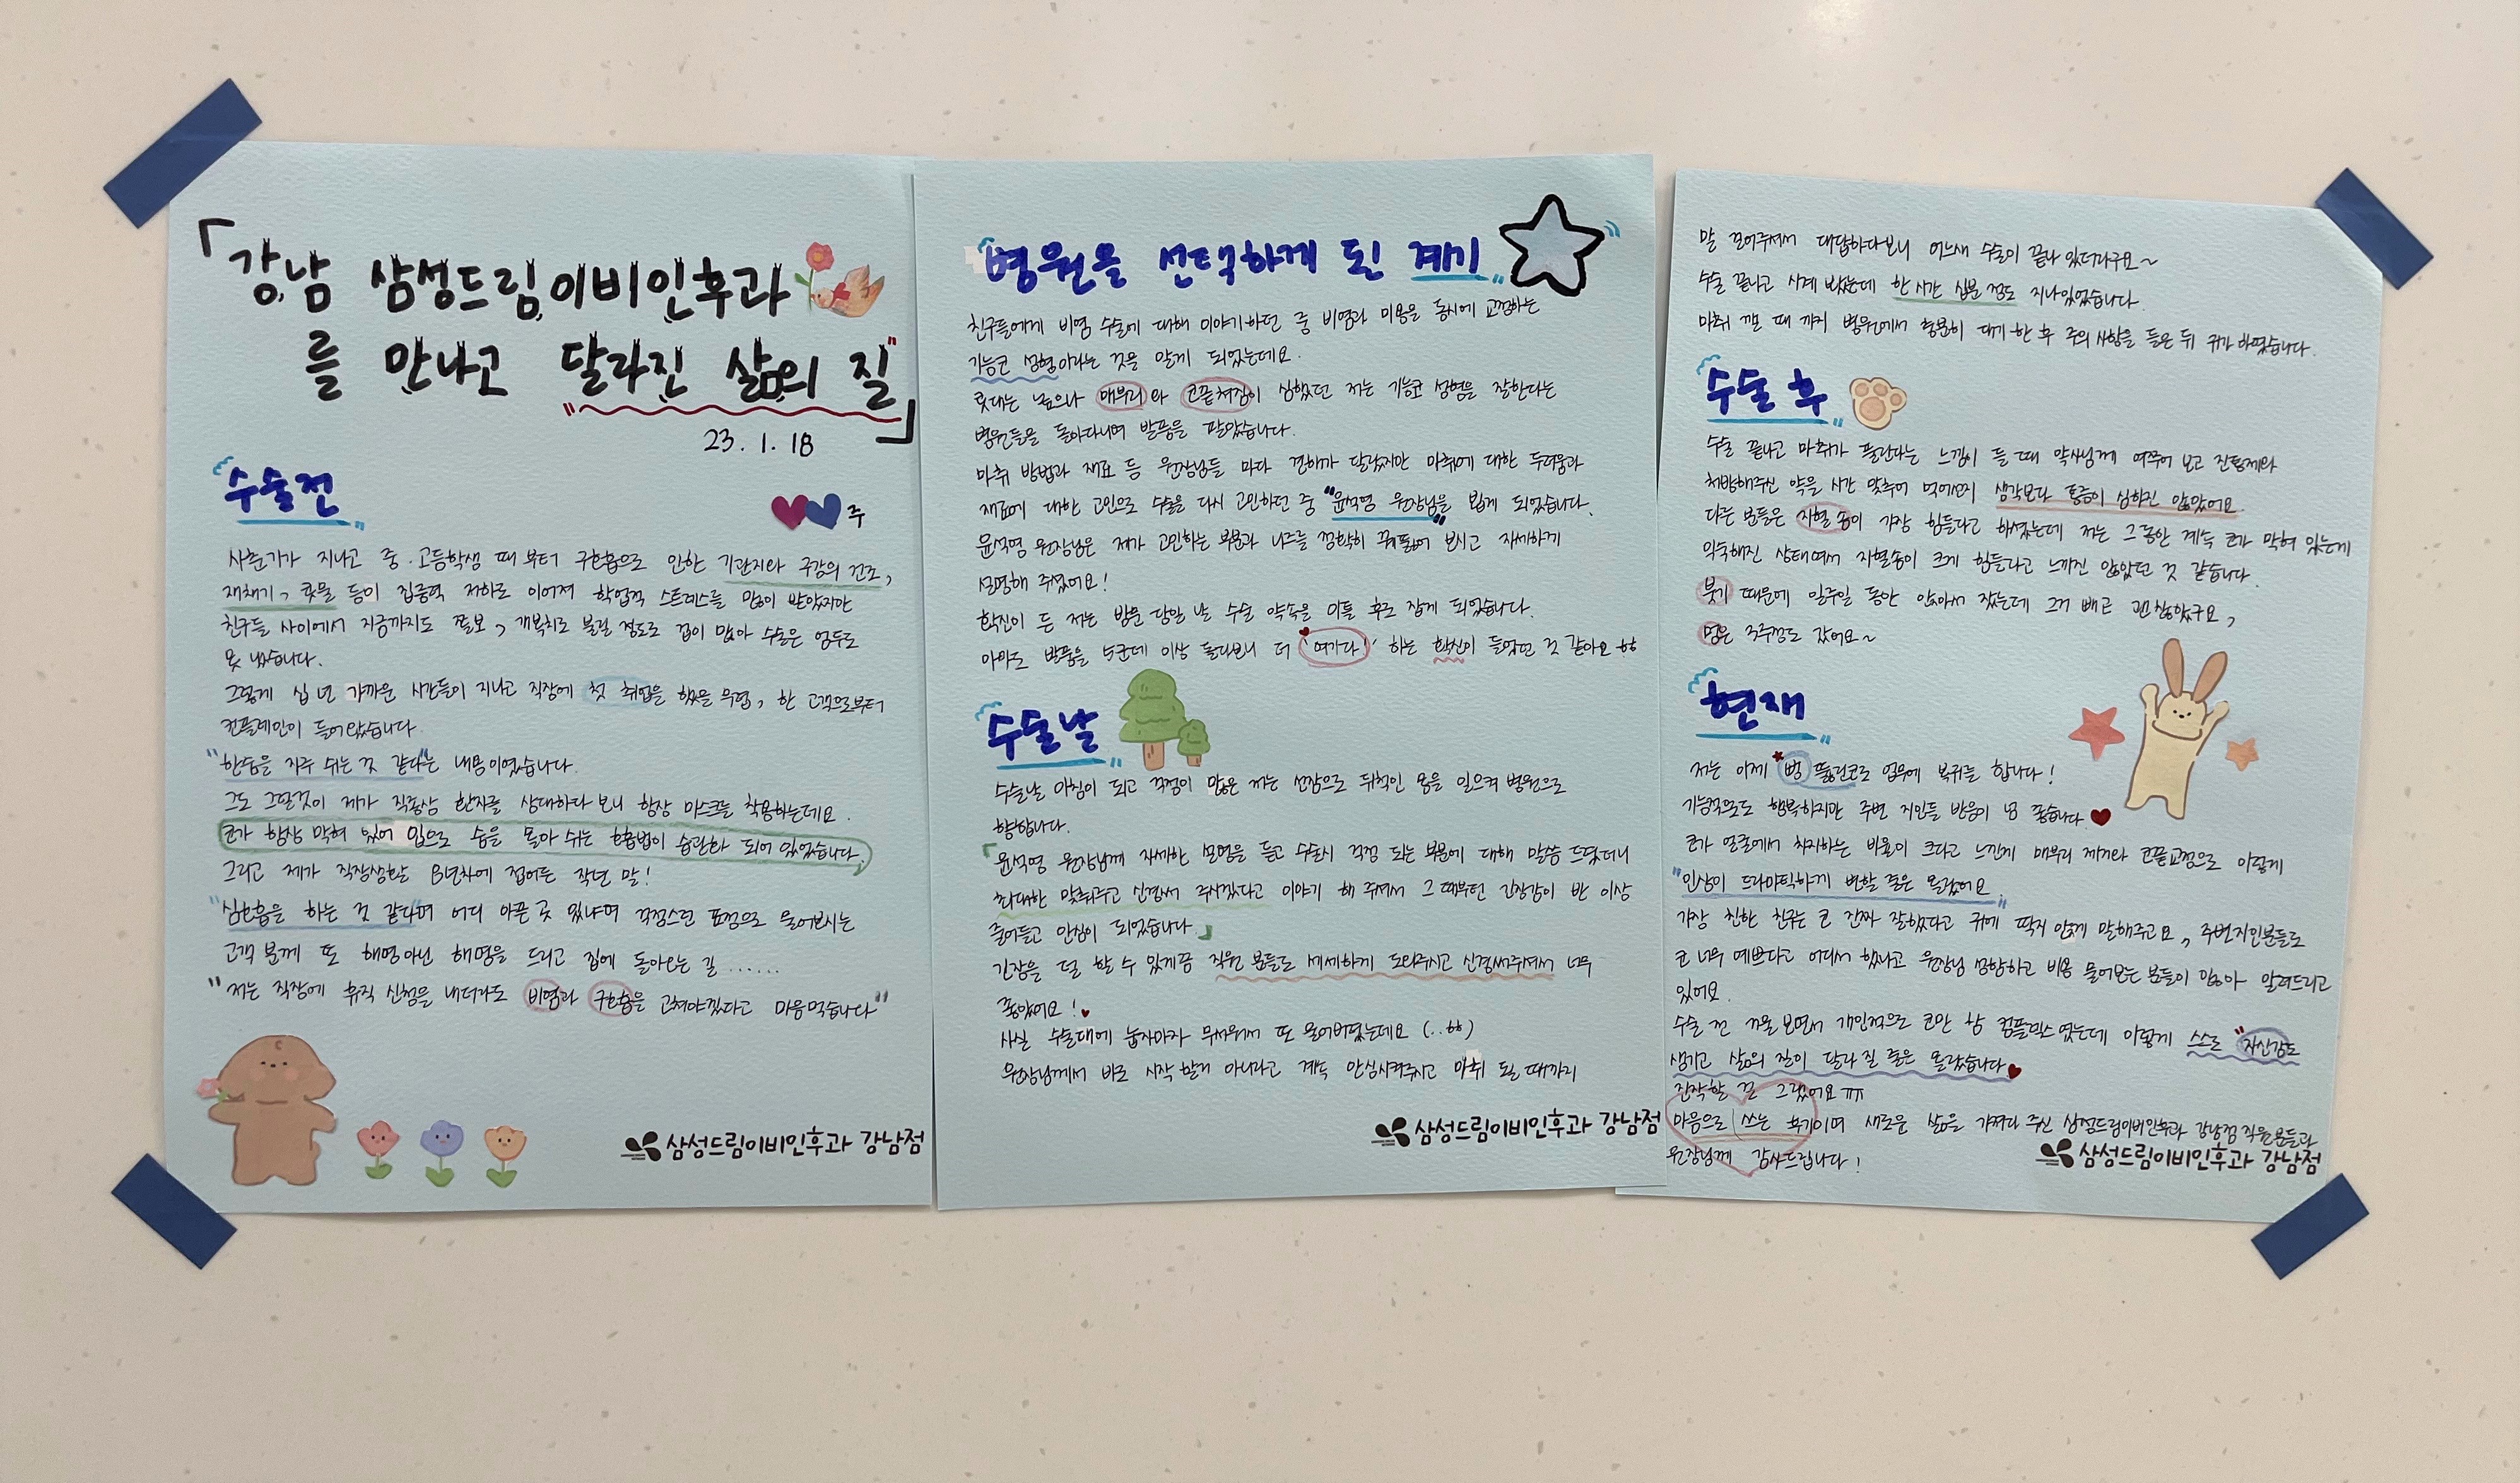 「강남 삼성드림이비인후과
를 만나고 "달라진 삶의 질"」
23. 1. 18
"수술전"
주
사춘기가 지나고 중·고등학생 때 부터 구호흡으로 인한 기관지와 구강의 건조,
재채기, 콧물 등이 집중력 저하로 이어져 학업적 스트레스를 많이 받았지만
친구들 사이에서 지금까지도 쫄보, 개복치로 불릴 정도로 겁이 많아 수술은 엄두도
못 냈습니다.
그렇게 십 년 가까운 시간들이 지나고 직장에 첫 취업을 했을 무렵, 한 고객으로부터
컨플레인이 들어왔습니다.
"한숨을 자주 쉬는 것 같다"는 내용이였습니다.
그도 그럴것이 제가 직종상 환자를 상대하다 보니 항상 마스크를 착용하는데요.
코가 항상 막혀 있어 입으로 숨을 몰아 쉬는 호흡법이 습관화 되어 있었습니다.
그리고 제가 직장생활 8년차에 접어든 작년 말!
"심호흡을 하는 것 같다"며 어디 아픈 곳 있냐며 걱정스런 표정으로 물어보시는
고객 분께 또 해명아닌 해명을 드리고 집에 돌아오는 길 ......
"저는 직장에 휴직 신청을 내더라도 비염과 구호흡을 고쳐야겠다고 마음먹습니다"
삼성드림이비인후과 강남점
"병원을 선택하게 된 계기"
친구들에게 비염 수술에 대해 이야기하던 중 비염과 미용을 동시에 교정하는
기능코 성형이라는 것을 알게 되었는데요.
콧대는 높으나 매부리와 코끝처짐이 심했던 저는 기능코 성형을 잘한다는
병원들을 돌아다니며 발품을 팔았습니다.
마취 방법과 재료 등 원장님들 마다 견해가 달랐지만 마취에 대한 두려움과
재료에 대한 고민으로 수술을 다시 고민하던 중 "윤석영 원장님을" 뵙게 되었습니다.
윤석영 원장님은 제가 고민하는 부분과 니즈를 정확히 꿰뚫어 보시고 자세하게
설명해 주셨어요!
확신이 든 저는 방문 당일 날 수술 약속을 이틀 후로 잡게 되었습니다.
아마도 발품을 5군데 이상 돌다보니 더 '여기다!' 하는 확신이 들었던 것 같아요 ㅎㅎ
"수술날"
수술날 아침이 되고 걱정이 많은 저는 선잠으로 뒤척인 몸을 일으켜 병원으로
향합니다.
「윤석영 원장님께 자세한 설명을 듣고 수술시 걱정 되는 부분에 대해 말씀 드렸더니
최대한 맞춰주고 신경써 주시겠다고 이야기 해 주셔서 그 때부턴 긴장감이 반 이상
줄어들고 안심이 되었습니다.」
긴장을 덜 할 수 있게끔 직원 분들도 세세하게 도와주시고 신경써주셔서 너무
좋았어요!
사실 수술대에 눕자마자 무서워서 또 울어버렸는데요 (..ㅎㅎ)
원장님께서 바로 시작할거 아니라고 계속 안심시켜주시고 마취 될 때까지
삼성드림이비인후과 강남점
말 걸어주셔서 대답하다보니 어느새 수술이 끝나 있더라구요~
수술 끝나고 시계 봤는데 한 시간 십분 정도 지나있었습니다.
마취 깨운 때 까지 병원에서 대기 한 후 주의 사항을 들은 뒤 귀가하였습니다.
"수술 후"
수술 끝나고 마취가 풀린다는 느낌이 들 때 약사님께 여쭈어 보고 진통제와
처방해주신 약을 시간 맞추어 먹어선지 생각보다 통증이 심하진 않았어요.
다른 분들은 지혈 솜이 가장 힘들다고 하셨는데 저는 그동안 계속 코가 막혀 있는게
익숙해진 상태여서 지혈솜이 크게 힘들다고 느끼진 않았던 것 같습니다.
붓기 때문에 일주일 동안 앉아서 잤는데 그거 빼고 괜찮았구요,
멍은 3주정도 갔어요~
"현재"
저는 이제 '뻥' 뚫린코로 업무에 복귀를 합니다!
기능적으로도 행복하지만 주변 지인들 반응이 넘 좋습니다.
코가 얼굴에서 차지하는 비율이 크다고 느낀게 매부리 제거와 코끝교정으로 이렇게
"인상이 드라마틱하게 변할 줄은 몰랐어요."
가장 친한 친구는 코 진짜 잘했다고 귀에 딱지 앉게 말해주고요, 주변지인분들도
코 너무 예쁘다고 어디서 했냐고 원장님 성함하고 비용 물어보는 분들이 많아 알려드리고
있어요.
수술 전 거울 보면서 개인적으로 코만 참 컴플렉스였는데 이렇게 스스로 "자신감도
생기고 삶의 질이 달라질 줄은 몰랐습니다.
진작할 걸 그랬어요 ㅠㅠ
마음으로 쓰는 후기이며 새로운 삶을 가져다 주신 삼성드림이비인후과 강남점 직원분들과
원장님께 감사드립니다!
삼성드림이비인후과 강남점